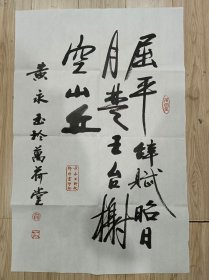 屈平辞赋昭日
月楚王台榭
空山丘
黄永玉於萬荷堂